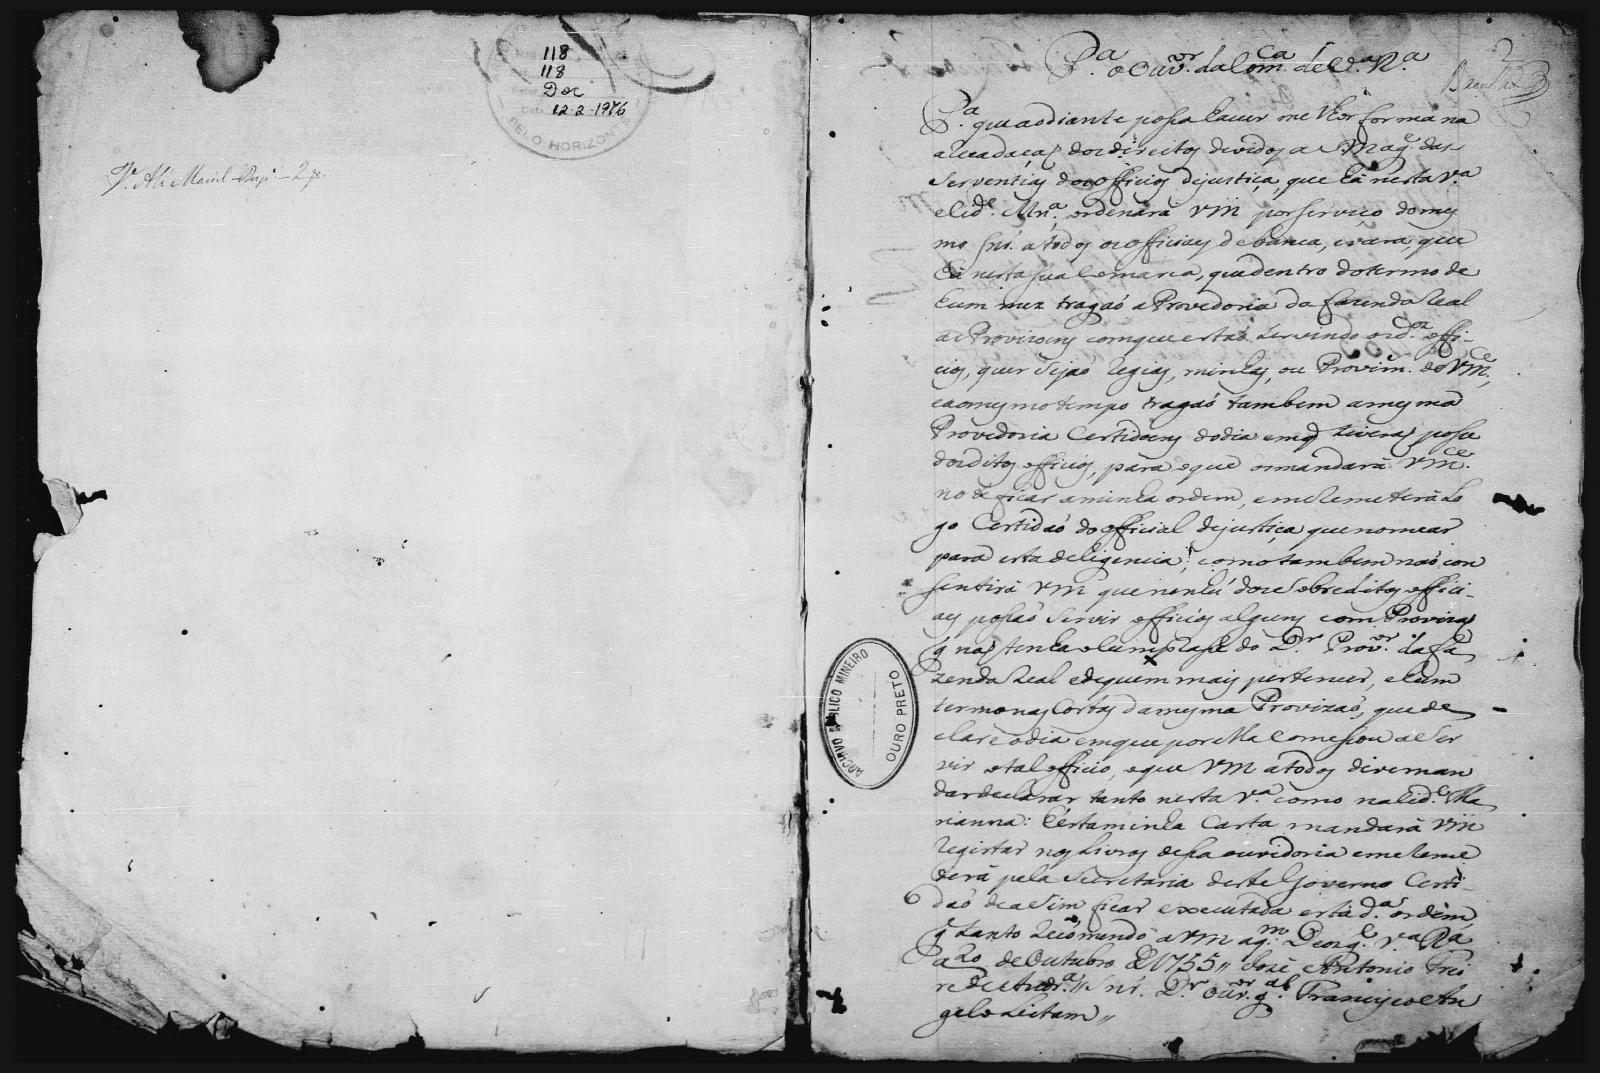 118
118
Doc
12-2-1976
BELO HORIZONTE
P.a o Ouv.or da Com.ca de V.a R.a
P.a que ao diante posa haver melhor forma na
arecadaçaõ dos direitos devidos a S Mag.e das
Serventias dos officios de justiça, que há nesta V.a
e Cid.e Mn.a ordenará Vm por serviço do mes
mo Snr. a todos os officiaes de banca, e vara, que
há nesta sua Comarca, que dentro do termo de
hum mez tragaõ a Provedoria da fazenda Real
as Provizoens com que estaõ servindo os d.os offi-
cios, quer sejaõ Regias, minhas, ou Provim. de Vm.ce,
e ao mesmo tempo tragaõ tambem a mesma
Provedoria Certidoens do dia em q tiveraõ pose
dos ditos officios, para o que os mandará Vm.ce
no e ficar a minha ordem, e me Remeterá lo
go Certidaõ do official de justiça que nomear
para esta deligencia; como tambem naõ con
sentirá Vm que nenhũ dos sobreditos offici-
aes posaõ servir officios alguns com Provizaõ
q naõ tenha o cumprase do D.r Prov.or da fa
zenda Real e de quem mais pertencer, e hum
termo nas Costas da mesma Provizaõ, que de
clare o dia em que por ella comesou a Ser
vir o tal officio, o que Vm a todos deve man
dar declarar, tanto nesta V.a como na Cid.e Ma
rianna: E esta minha Carta mandará Vm
Registar nos Livros desa ouvidoria e me Reme
terá pela Secretaria deste Governo Certi-
daõ de asim ficar executada esta d.a ordem
q tanto Recõmendo a Vm a q.m D.s g.e V.a R.a
a 20 de Outubro de 1755,, Jozé Antonio Frei
re de Andr.a,, Snr. D.r Ouv.or g.al Francisco An
gelo Leitam,,
ARCHIVO PUBLICO MINEIRO
OURO PRETO